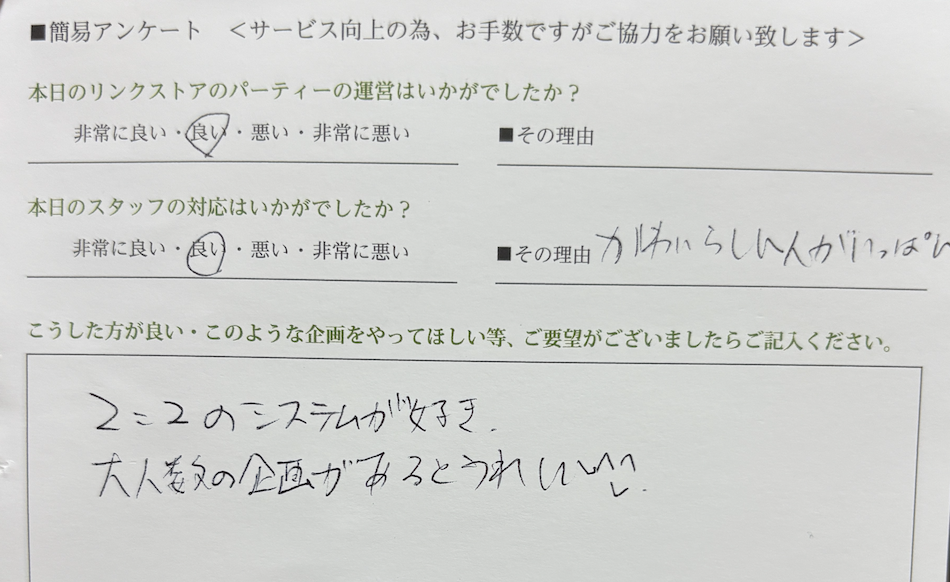 ■簡易アンケート ＜サービス向上の為、お手数ですがご協力をお願い致します＞
本日のリンクストアのパーティーの運営はいかがでしたか？
非常に良い・良い・悪い・非常に悪い ■その理由
本日のスタッフの対応はいかがでしたか？
非常に良い・良い・悪い・非常に悪い ■その理由 かわいらしい人がいっぱい
こうした方が良い・このような企画をやってほしい等、ご要望がございましたらご記入ください。
2:2のシステムが好き.
大人数の企画があるとうれしい